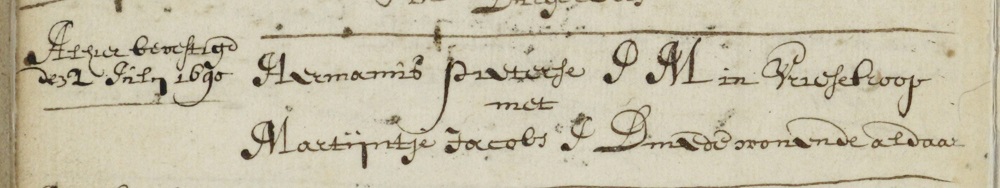 Alhier bevestigd
den 2 Julÿ 1690
Hermanus pieterse J M in Vriesekoop
met
Martÿntje Jacobs J D mede wonende aldaar